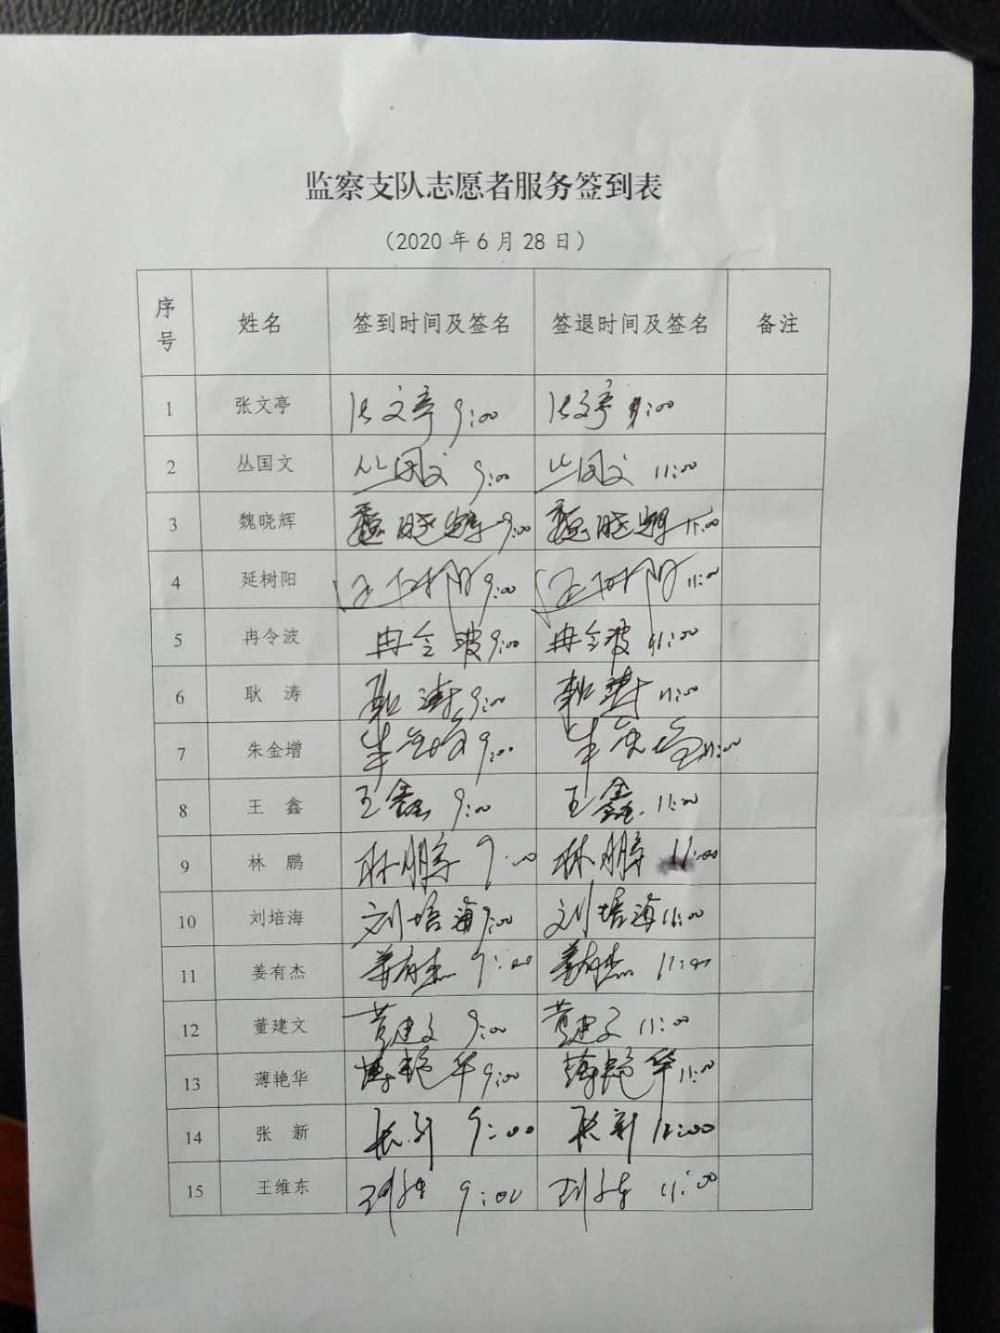 监察支队志愿者服务签到表
（2020 年 6 月 28 日）
序号 姓名 签到时间及签名 签退时间及签名 备注
1 张文亭 张文亭 9:00 张文亭 11:00
2 丛国文 丛国文 9:00 丛国文 11:00
3 魏晓辉 魏晓辉 9:00 魏晓辉 11:00
4 延树阳 延树阳 9:00 延树阳 11:00
5 冉令波 冉令波 9:00 冉令波 11:00
6 耿 涛 耿涛 9:00 耿涛 11:00
7 朱金增 朱金增 9:00 朱金增 11:00
8 王 鑫 王鑫 9:00 王鑫 11:00
9 林 鹏 林鹏 9:00 林鹏 11:00
10 刘培海 刘培海 9:00 刘培海 11:00
11 姜有杰 姜有杰 9:00 姜有杰 11:00
12 董建文 董建文 9:00 董建文 11:00
13 薄艳华 薄艳华 9:00 薄艳华 11:00
14 张 新 张新 9:00 张新 11:00
15 王维东 9:00 11:00